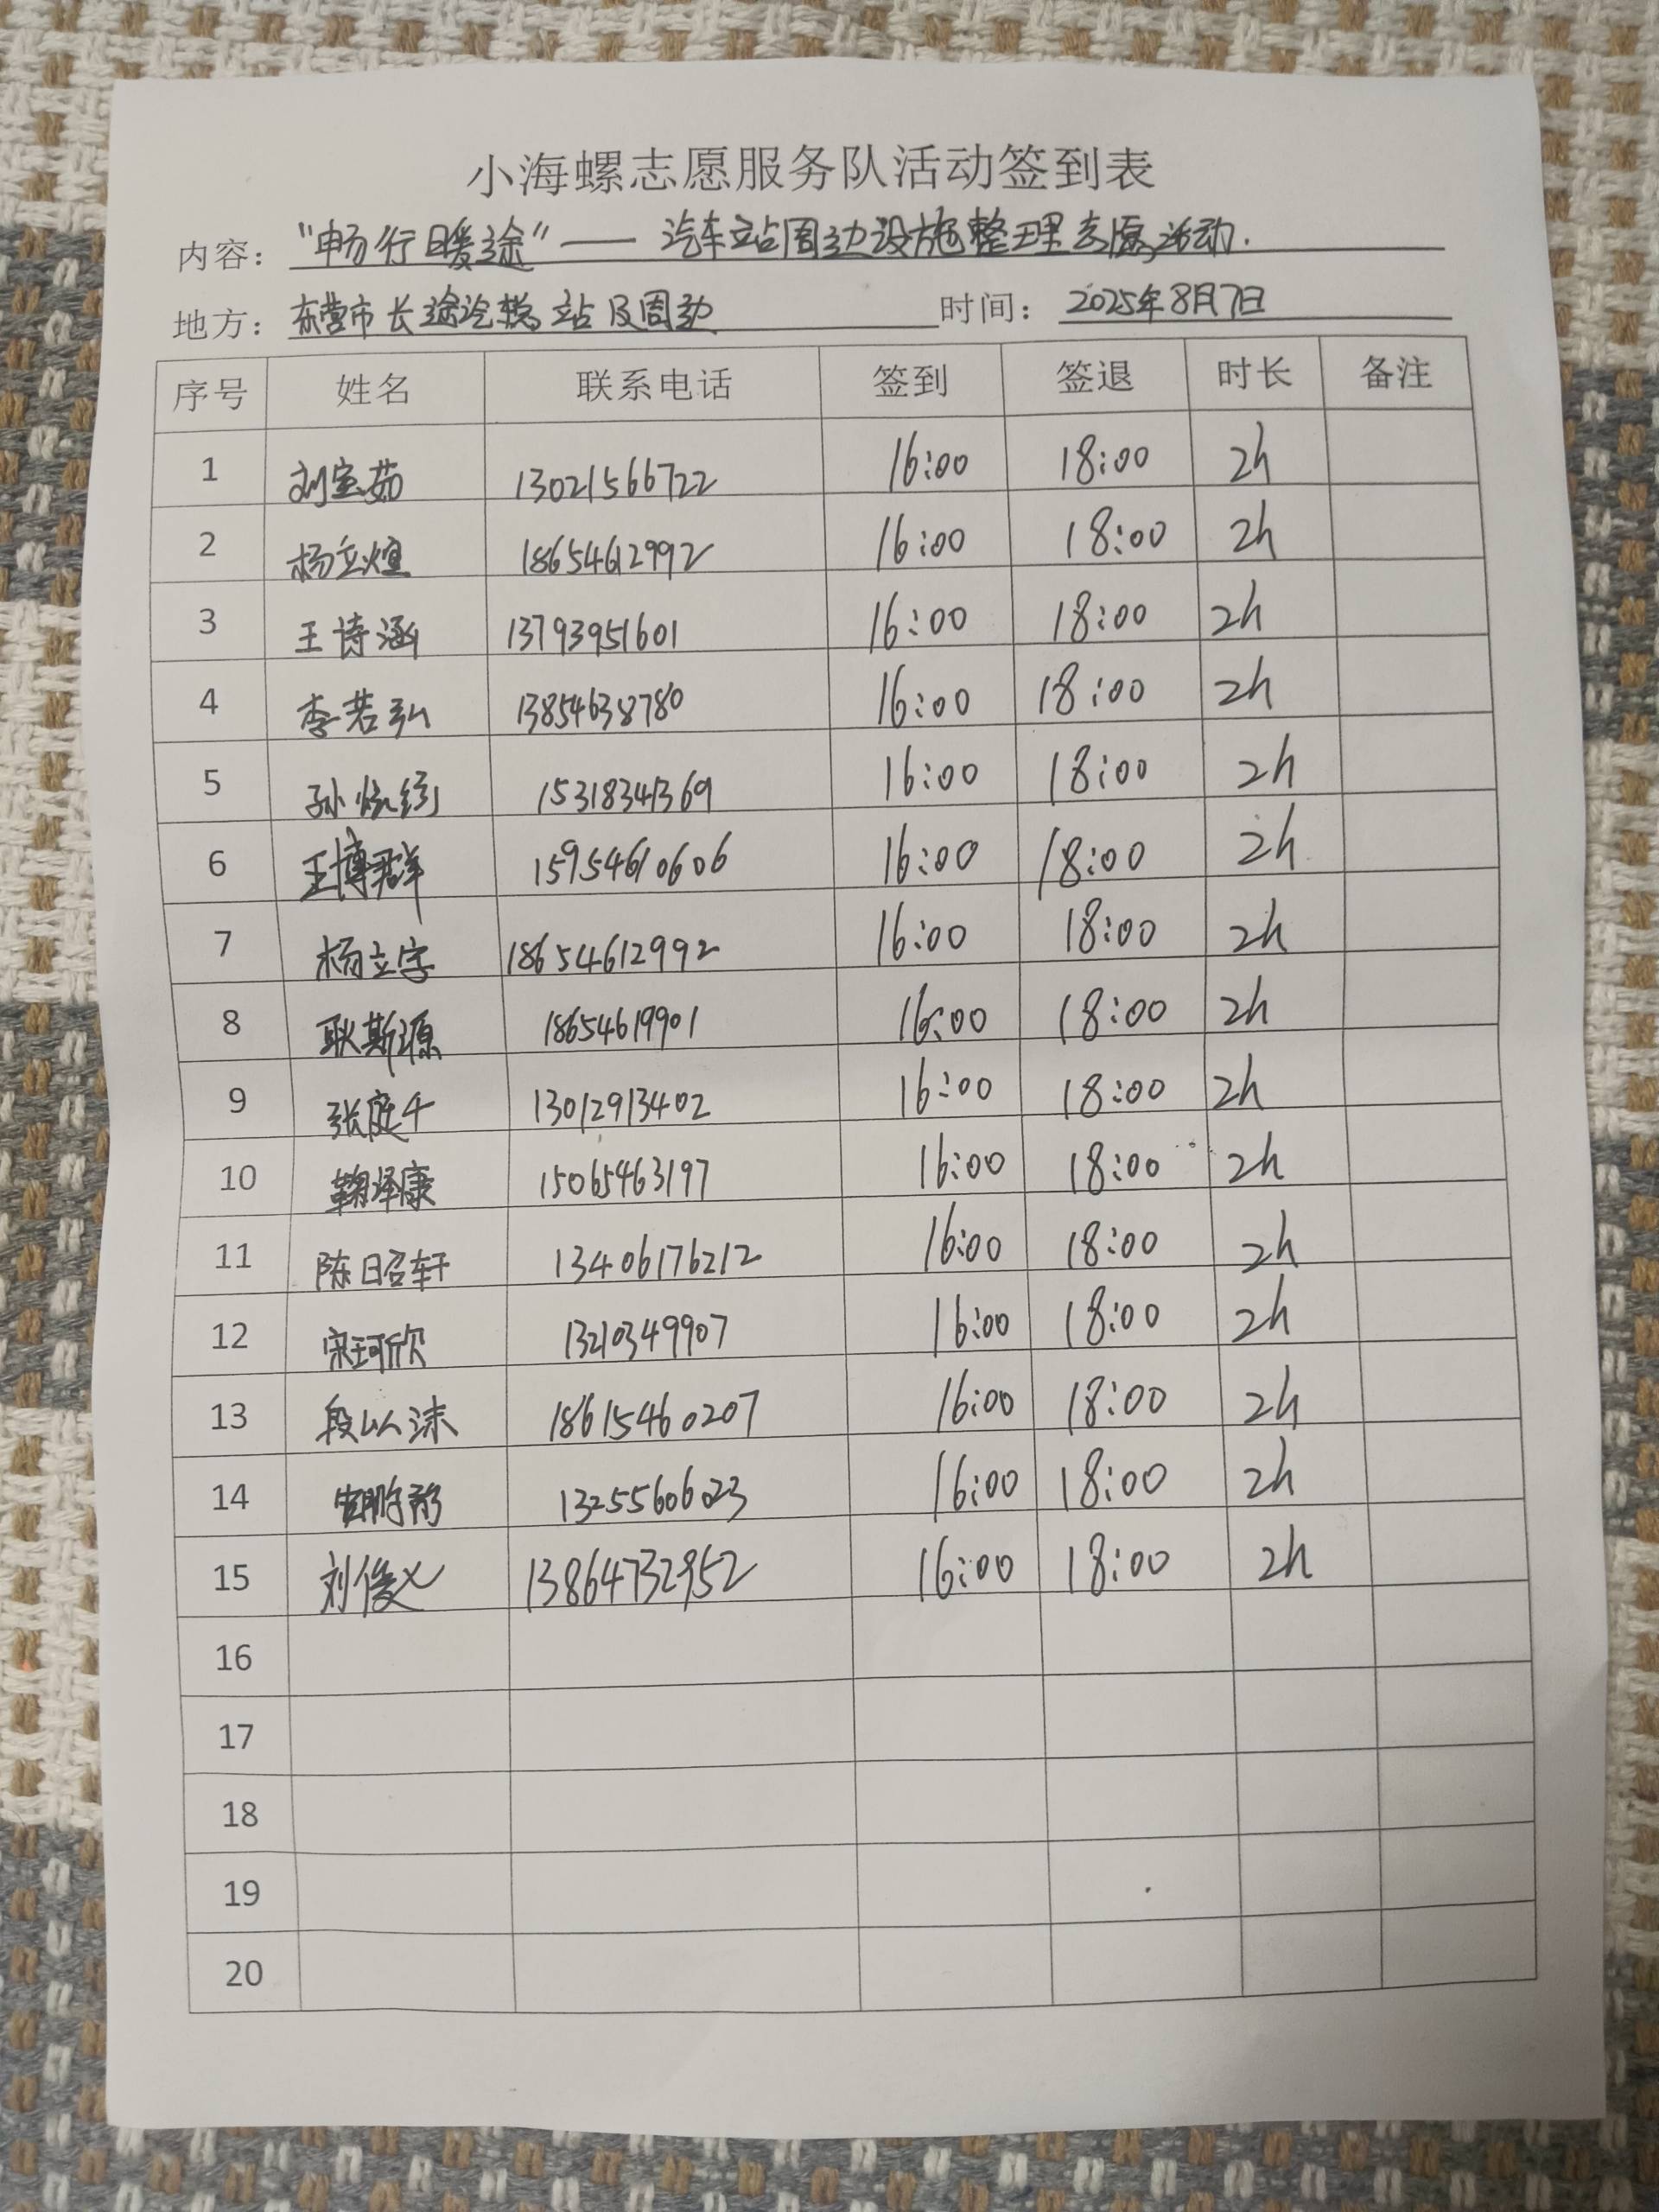 小海螺志愿服务队活动签到表
内容："畅行暖途"—— 汽车站周边设施整理志愿活动.
地方：东营市长途汽车站及周边 时间：2025年8月7日
序号 姓名 联系电话 签到 签退 时长 备注
1 刘宝茹 13021566722 16:00 18:00 2h
2 杨立煊 18654612992 16:00 18:00 2h
3 王诗涵 13793951601 16:00 18:00 2h
4 李若弘 13854638780 16:00 18:00 2h
5 孙 15318341369 16:00 18:00 2h
6 王博群 15954610606 16:00 18:00 2h
7 杨立宇 18654612992 16:00 18:00 2h
8 耿斯源 18654619901 16:00 18:00 2h
9 张庭千 13012913402 16:00 18:00 2h
10 鞠泽康 15065463197 16:00 18:00 2h
11 陈昭轩 13406176212 16:00 18:00 2h
12 宋珂欣 13210349907 16:00 18:00 2h
13 段以沫 18615460207 16:00 18:00 2h
14 13255606023 16:00 18:00 2h
15 刘俊义 13864732952 16:00 18:00 2h
16
17
18
19
20